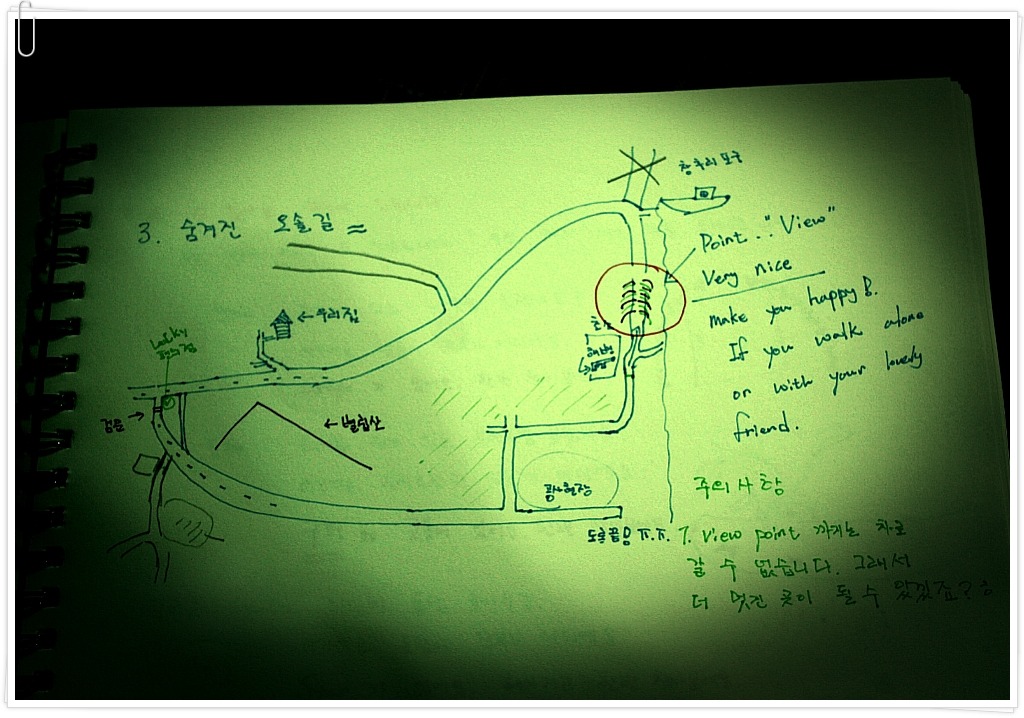 3. 숨겨진 오솔길 ≈
Point.. "View"
Very nice
make you happy B.
If you walk alone
or with your lovely
friend.
←우리집
Lucky
편의점
검문 →
← 별립산
해병
도로끝임 ㅠ.ㅠ.
주의사항
1. View point 까지는 차로
갈 수 없습니다. 그래서
더 멋진 곳이 될 수 있겠죠?